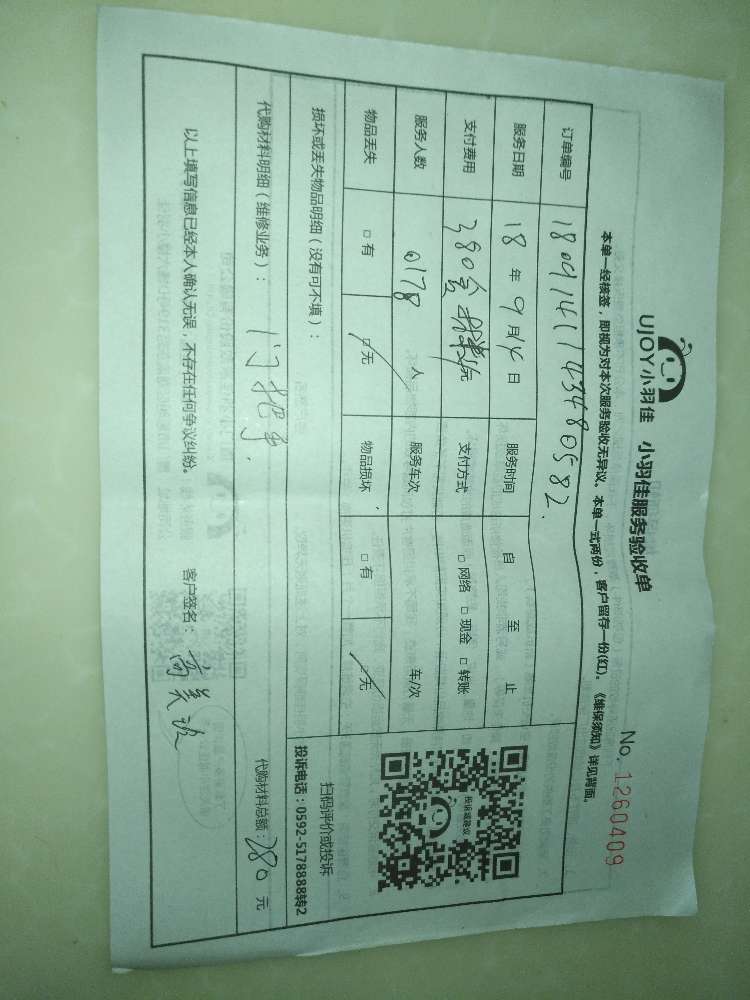 UJOY小羽佳 小羽佳服务验收单
No. 1260409
本单一经核签，即视为对本次服务验收无异议。本单一式两份，客户留存一份(红)。《维保须知》详见背面。
订单编号 1809141143480582
服务日期 18 年 9 月 14 日 服务时间 自 至 止
支付费用 380 元 支付方式 □ 网络 □ 现金 □ 转账
服务人数 0178 人 服务车次 车/次
物品丢失 □ 有 □ 无 物品损坏 □ 有 □ 无
投诉或建议
扫码评价或投诉
投诉电话：0592-5178888转2
损坏或丢失物品明细（没有可不填）：
代购材料明细（维修业务）： 门把手 代购材料总额：280 元
以上填写信息已经本人确认无误，不存在任何争议纠纷。 客户签名： 高美